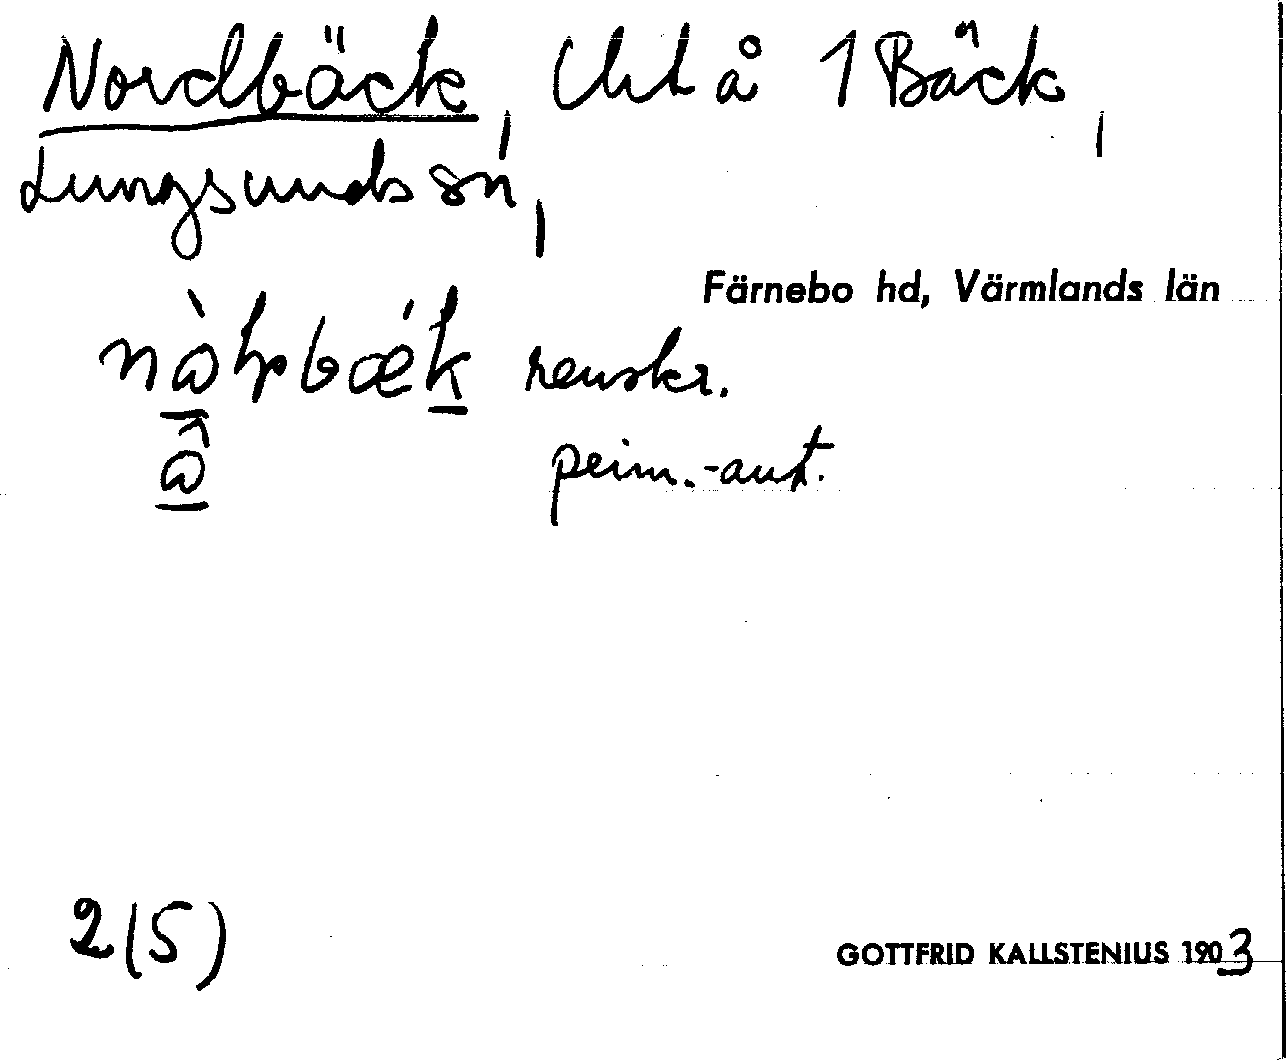 Nordbäck, Uht å 1 Bäck,
Lungsunds sn,
Färnebo hd, Värmlands län
renskr.
prim.-ant.
2(5)
GOTTFRID KALLSTENIUS 1903